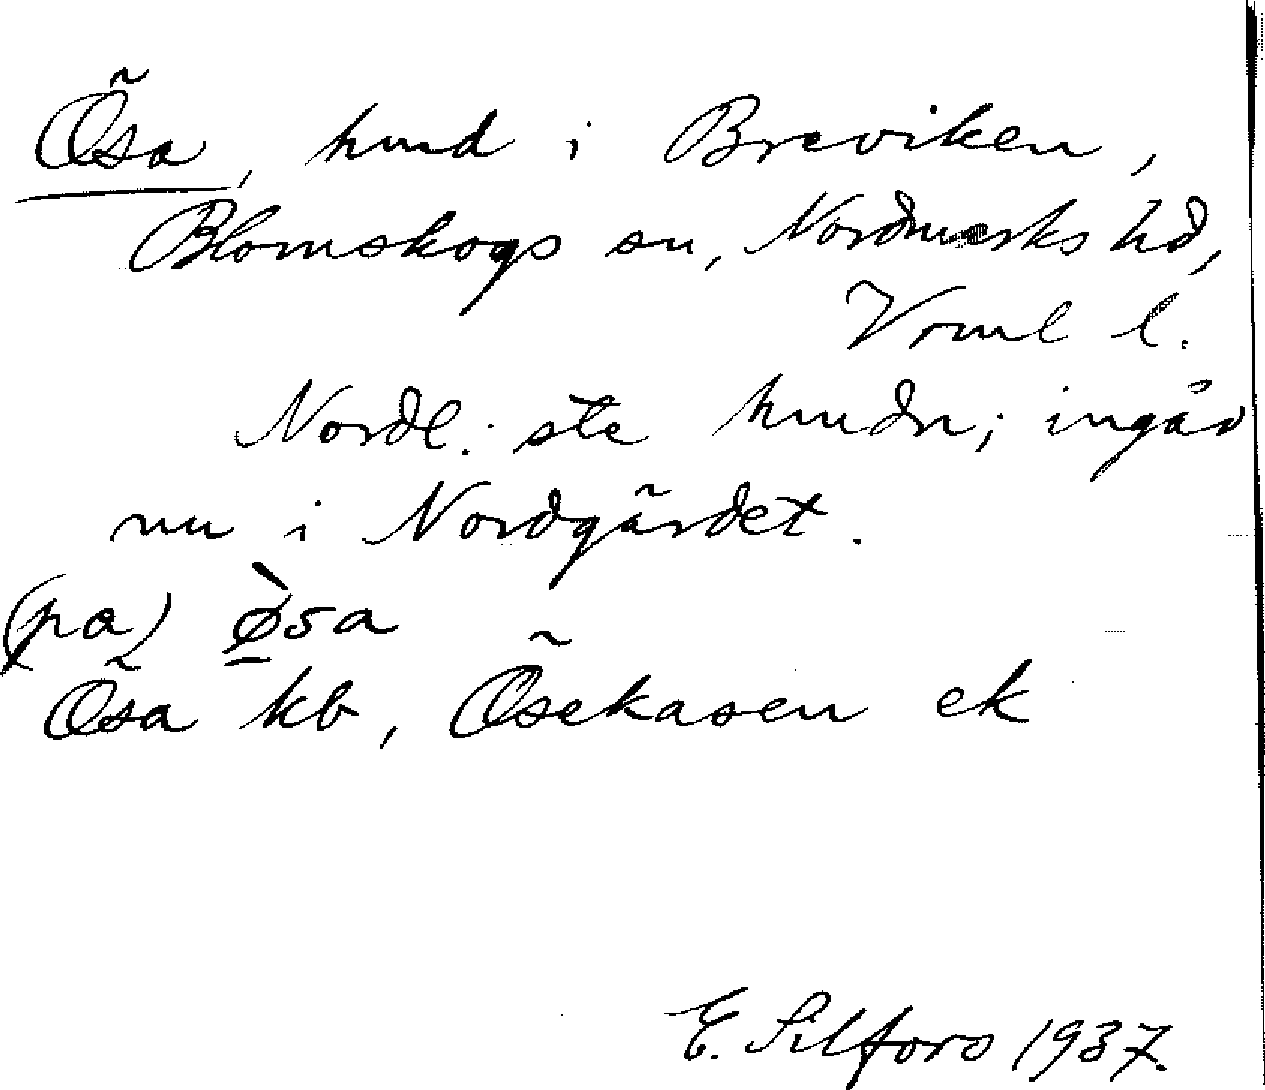 Ösa, hmd i Breviken,
Blomskogs sn, Nordmarks hd,
Vrml l.
Nordl. ste hmdn; ingår
nu i Nordgärdet.
(pa) ø̀sa
Ösa kb, Ösekasen ek
E. Silfors 1937.